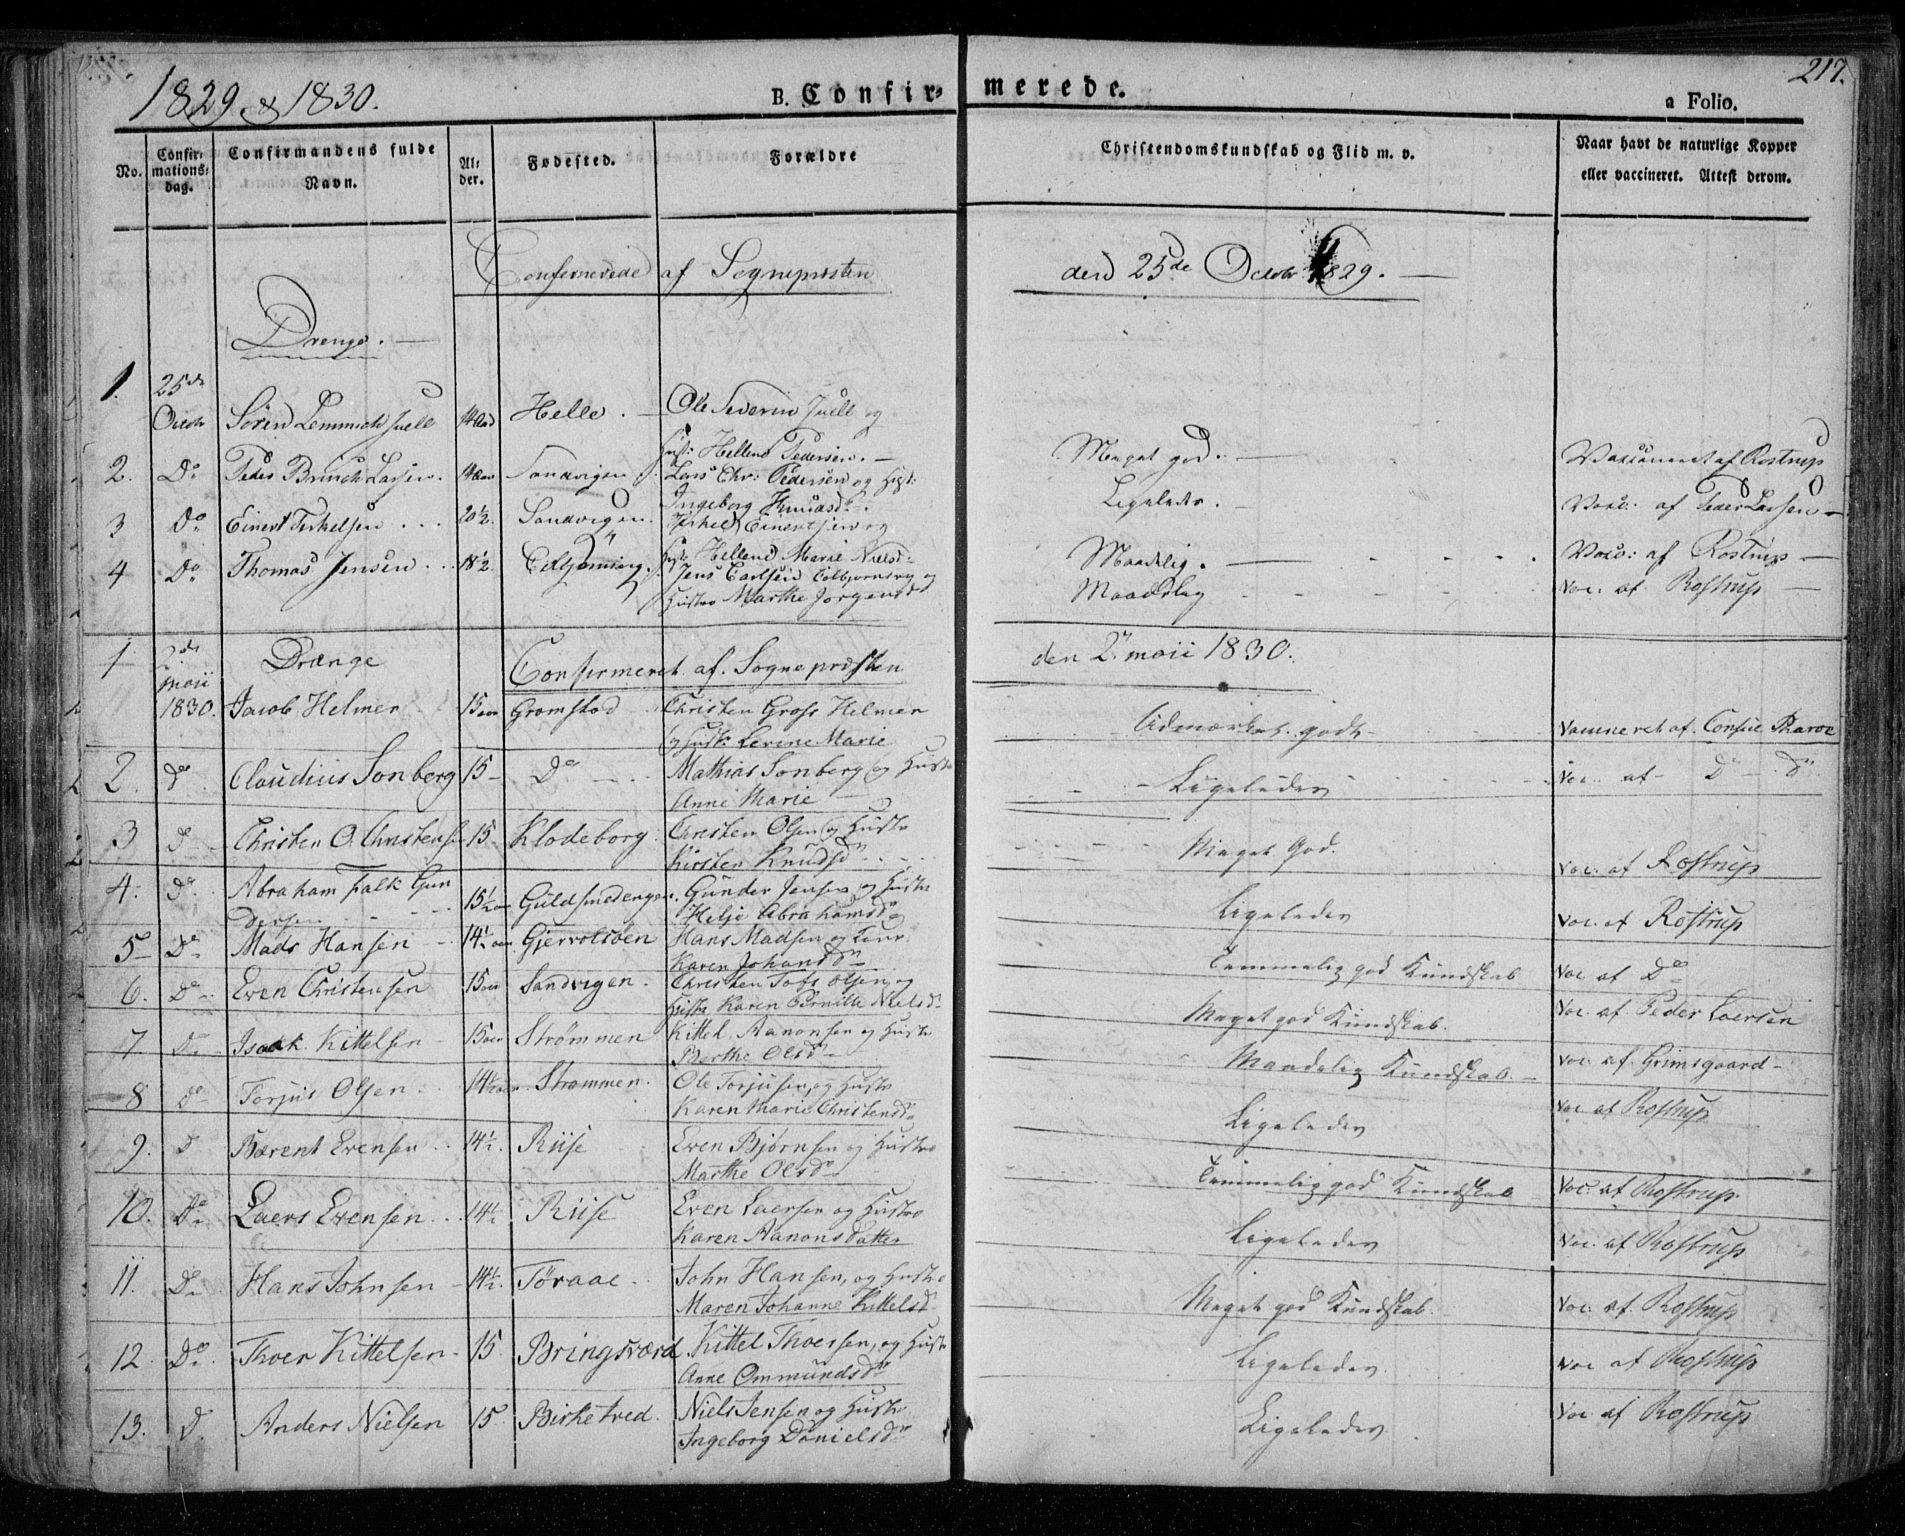 217.
1829 & 1830.
B. Confirmerede.
a Folio.
No. Confirmationsdag. Confirmandens fulde Navn. Alder. Fødested. Forældre Christendomskundskab og Flid m. v. Naar havt de naturlige Kopper eller vaccineret. Attest derom.
Confirmerede af Sognepresten den 25de Octobr 1829.
Drenge.
1. 25de Octbr Sören Lemmich Juell 14 Helle. Ole Severin Juell og
Hust: Hellene Pedersen. Meget god. Vaccineret af Rostrup
2. Do Peder Brinch Larsen. 14 Sandvigen Lars Chr: Pedersen og Hust:
Ingeborg Knudsd. Ligeledes. Vacc: af Peder Larsen
3 Do Einert Terkelsen 20½ Sandvigen. Terkel Einertsen og
Hust: Hellene Marie Nielsd: Maadelig. Vacc: af Rostrup
4 Do Thomas Jensen 18½ Jens Carlsen og
Hustro Marthe Jorgensd Maadelig Vac: af Rostrup
Drænge Confirmeret af Sognepræsten den 2. maii 1830.
1 2de maii 1830. Jacob Helmer 15 aar Gromstad Christen Gross Helmer
og Hust: Lerine Marie Udmærket godt Vaccineret af Consul Pharoe
2. Do Claudius Sonberg 15 Do Mathias Sonberg og Hustr
Anne Marie Ligeledes Vac. af D D
3 D Christen O. Christens 15 Klodeborg Christen Olsen og Hustr
Kirsten Knudsd Meget God. Vac. af Rostrup
4. Do Abraham Falk Gun
dersen 15½ Guldsmedengen. Gunder Jensen og Hustr
Helje Abrahamsd Ligeledes Vac. af Rostrup
5 Do Mads Hansen 14½ Gjervolsøen Hans Madsen og
Karen Johansd Temmelig god Kundskab Vac af Do
6. D Even Christensen 15 aar Sandvigen. Christen Tobs Olsen og
Hustr Karen Pernille Nielsd Meget god Kundskab. Vac. af Peder Laersen
7 D Isaak Kittelsen 15 aar Strømmen Kittel Aanonsen og Hustr
Berthe Olsd Maadelig Kundskab. Vac. af Grimsgaard
8 D Torjus Olsen 14½ Strømmen. Ole Torjusen og Hustr
Karen Marie Christensd Ligeledes Vac af Rostrup
9. D Bærent Evensen 14½ Riise Even Bjørnsen og Hustro
Marthe Olsd Temmelig god Kundskab Vac. af Rostrup
10. Do Laers Evensen 14½ Riise Even Laersen og Hustro
Karen Aanonsdatter Ligeledes Vac. af Rostrup
11. D Hans Johnsen 14½ Töraae John Hansen, og Hustro
Maren Johanne Kittelsd Meget god Kundskab. Vac. af Rostrup
12. Do Thoer Kittelsen 15 Bringsværd Kittel Thoersen, og Hustr
Anne Ommundsd Ligeledes Vac af Rostrup
13. D. Anders Nielsen 15 Birketved. Niels Jensen og Hustr
Ingeborg Danielsd Ligeledes Vac. af Rostrup